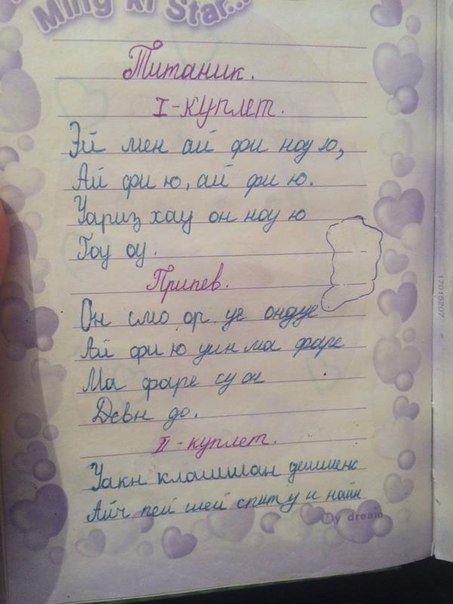 Ming xi Star...
Титаник.
I-куплет.
Эй мен ай фи ноу ю,
Ай фи ю, ай фи ю.
Уариз хау он ноу ю
Гоу оу.
Припев.
Он смо ор уе ондуе
Ай фи ю уин ма фаре
Ма фаре су он
Девн до.
II-куплет.
Уакн клашшан дишиенс
Айч пей шей спиту и найн
My dream
17015207